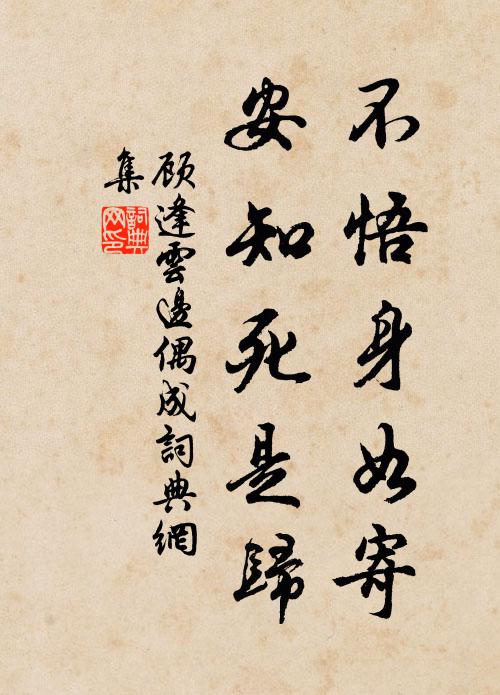 不悟身如寄
安知死是歸
顾逢雲邊偶成詞典網
集
詞典
网印